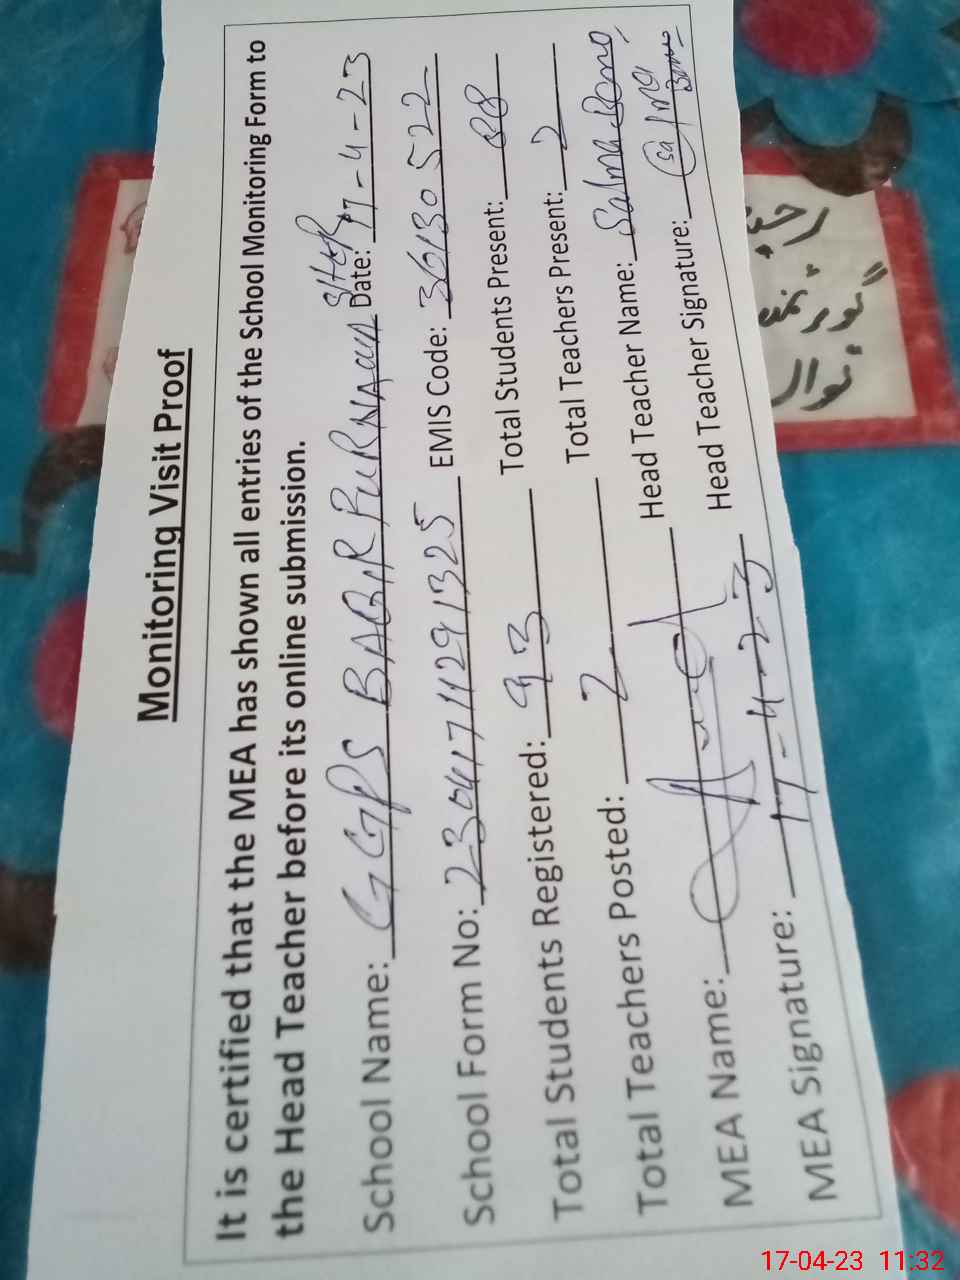 Monitoring Visit Proof
It is certified that the MEA has shown all entries of the School Monitoring Form to
the Head Teacher before its online submission.
School Name: GGPS BAQIR PUR Date: 17-4-23
School Form No: EMIS Code: 36130522
Total Students Registered: 93 Total Students Present: 88
Total Teachers Posted: 2 Total Teachers Present: 2
MEA Name: Head Teacher Name: Salma Bano
MEA Signature: 17-4-23 Head Teacher Signature: Salma Bano
17-04-23 11:32